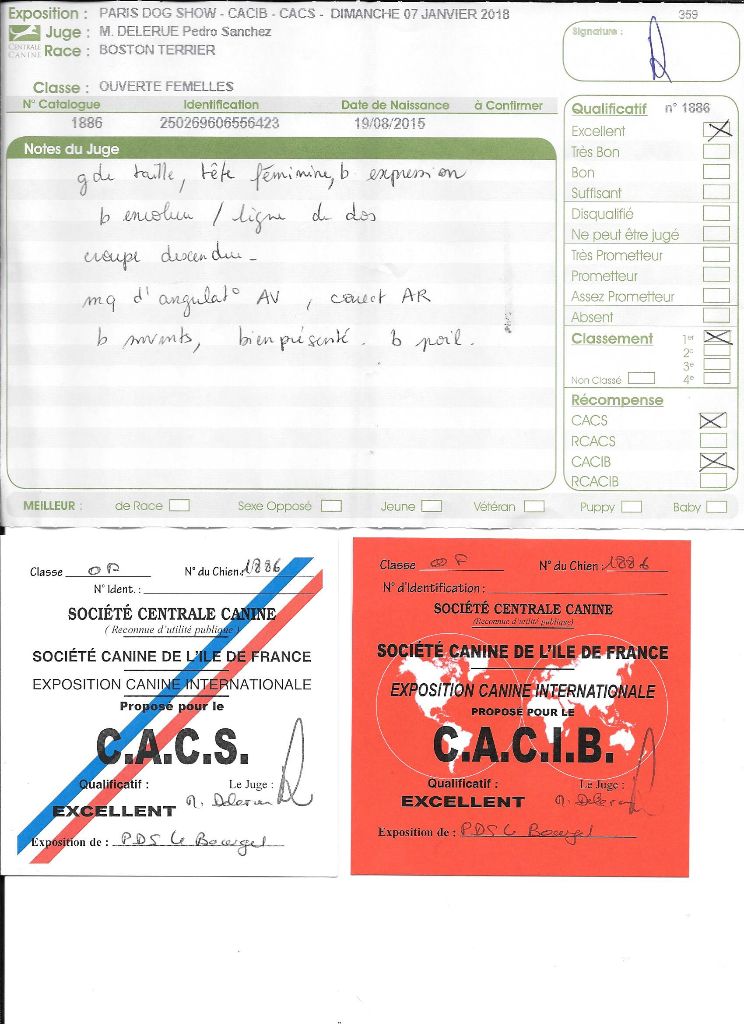 Exposition : PARIS DOG SHOW - CACIB - CACS - DIMANCHE 07 JANVIER 2018
359
Juge : M. DELERUE Pedro Sanchez
CENTRALE CANINE
Race : BOSTON TERRIER
Signature :
Classe : OUVERTE FEMELLES
N° Catalogue Identification Date de Naissance à Confirmer
1886 250269606556423 19/08/2015
Notes du Juge
gde taille, tête féminine, b expression
b encolure / ligne de dos
croupe descendue -
mq d'angulat° AV, correct AR
b mvmts, bien présenté. b poil.
Qualificatif n° 1886
Excellent
Très Bon
Bon
Suffisant
Disqualifié
Ne peut être jugé
Très Prometteur
Prometteur
Assez Prometteur
Absent
Classement 1er
2e
3e
Non Classé 4e
Récompense
CACS
RCACS
CACIB
RCACIB
MEILLEUR : de Race Sexe Opposé Jeune Vétéran Puppy Baby
Classe OF N° du Chien : 1886
N° Ident. :
SOCIÉTÉ CENTRALE CANINE
( Reconnue d'utilité publique )
SOCIÉTÉ CANINE DE L'ILE DE FRANCE
EXPOSITION CANINE INTERNATIONALE
Proposé pour le
C.A.C.S.
Qualificatif : Le Juge :
EXCELLENT M. Delerue
Exposition de : PDS Le Bourget
Classe OF N° du Chien : 1886
N° d'Identification :
SOCIÉTÉ CENTRALE CANINE
(Reconnue d'utilité publique)
SOCIÉTÉ CANINE DE L'ILE DE FRANCE
EXPOSITION CANINE INTERNATIONALE
PROPOSÉ POUR LE
C.A.C.I.B.
Qualificatif : Le Juge :
EXCELLENT M. Delerue
Exposition de : PDS Le Bourget